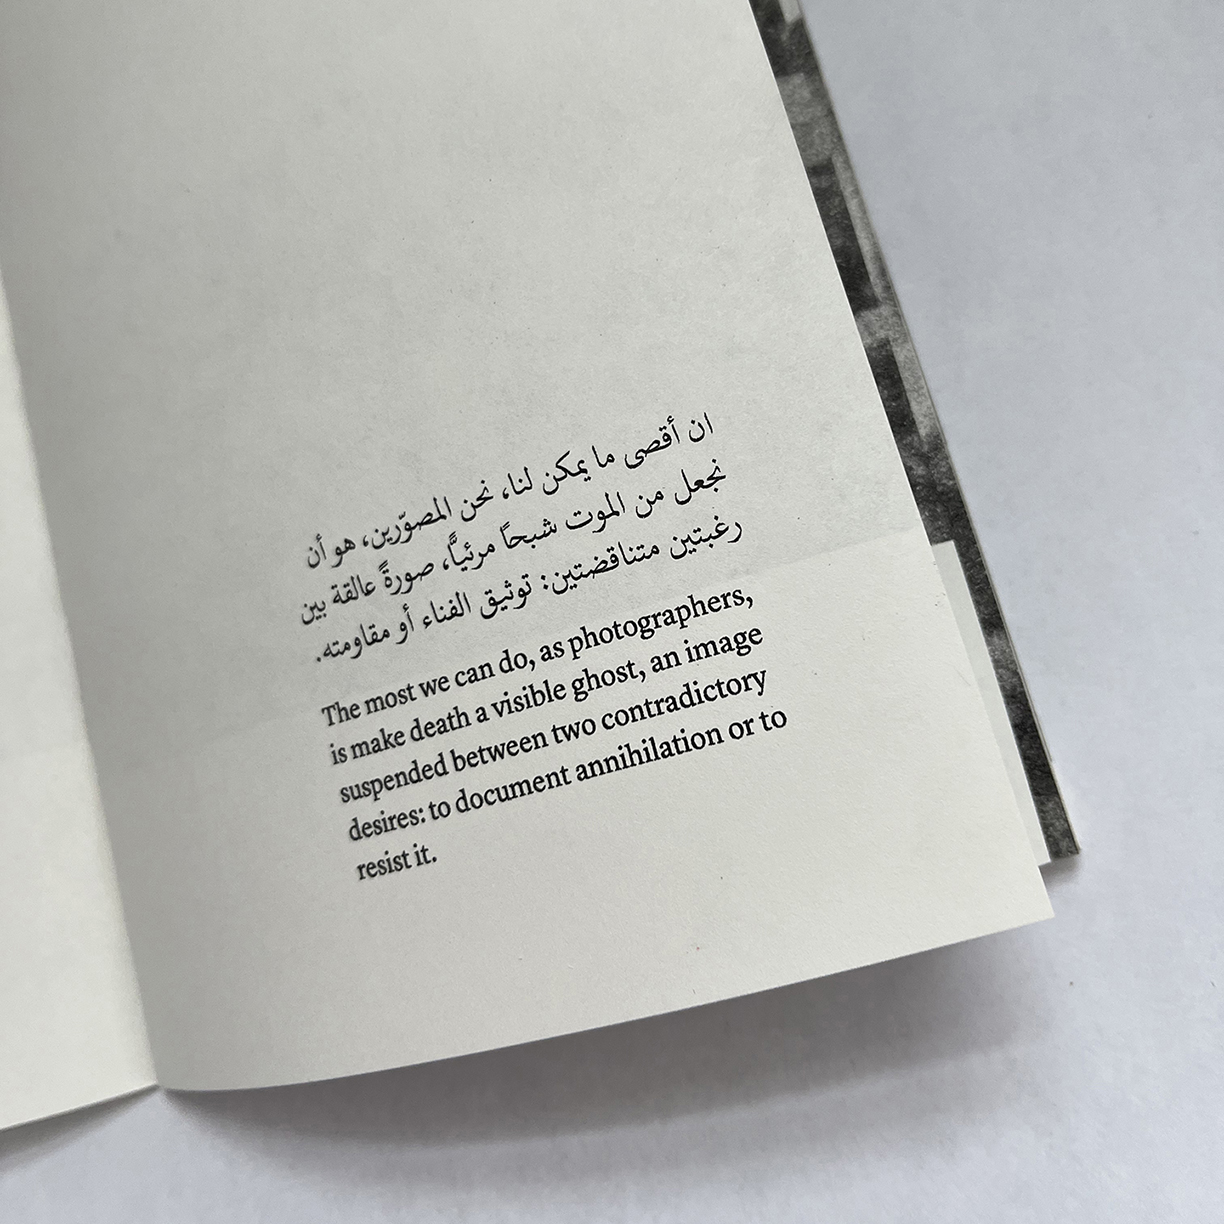 ان أقصى ما يمكن لنا، نحن المصوّرين، هو أن
نجعل من الموت شبحًا مرئيًّا، صورةً عالقة بين
رغبتين متناقضتين: توثيق الفناء أو مقاومته.
The most we can do, as photographers,
is make death a visible ghost, an image
suspended between two contradictory
desires: to document annihilation or to
resist it.